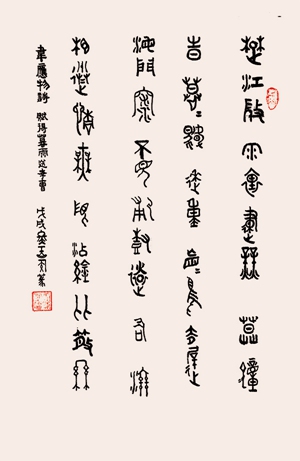 楚江微雨裏建業暮鐘
時漠漠帆來重冥冥鳥去遲
海門深不見浦樹遠含滋
相送情無限沾襟比散絲
韋應物詩 賦得暮雨送李曹 戊戌 篆